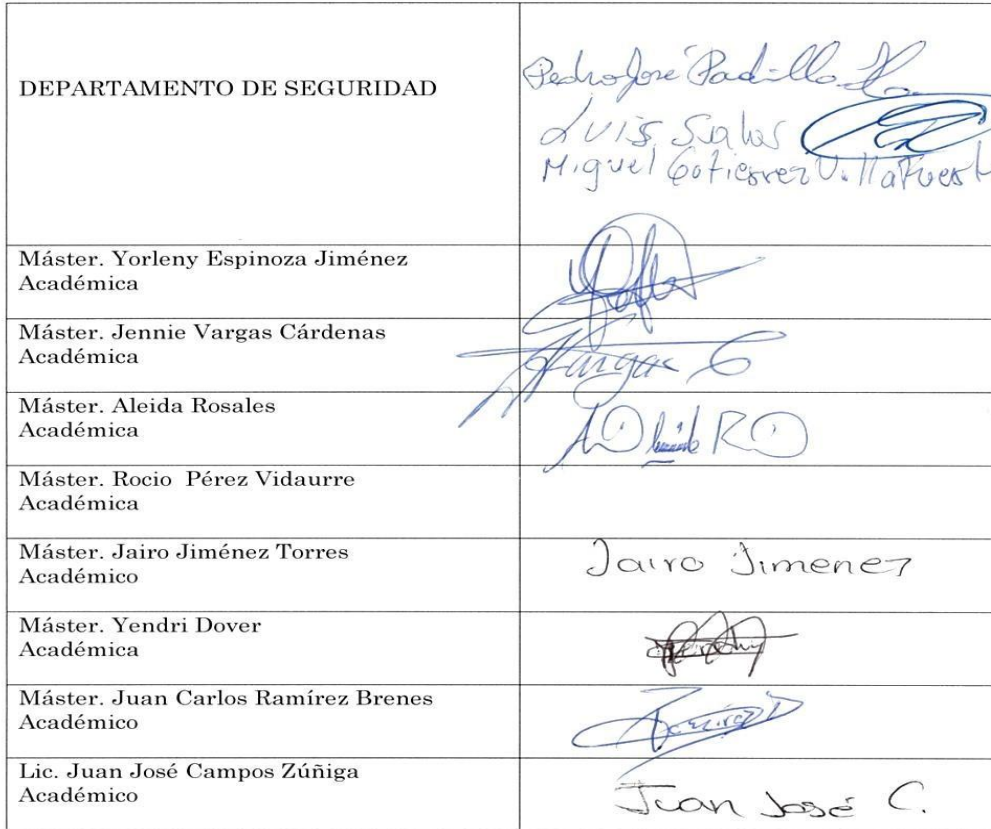 DEPARTAMENTO DE SEGURIDAD
Pedro José Padilla
Luis Salas
Miguel Gotierrez Villafuert
Máster. Yorleny Espinoza Jiménez
Académica
Máster. Jennie Vargas Cárdenas
Académica
Vargas C
Máster. Aleida Rosales
Académica
Máster. Rocio Pérez Vidaurre
Académica
Máster. Jairo Jiménez Torres
Académico
Jairo Jimenez
Máster. Yendri Dover
Académica
Máster. Juan Carlos Ramírez Brenes
Académico
Lic. Juan José Campos Zúñiga
Académico
Juan José C.